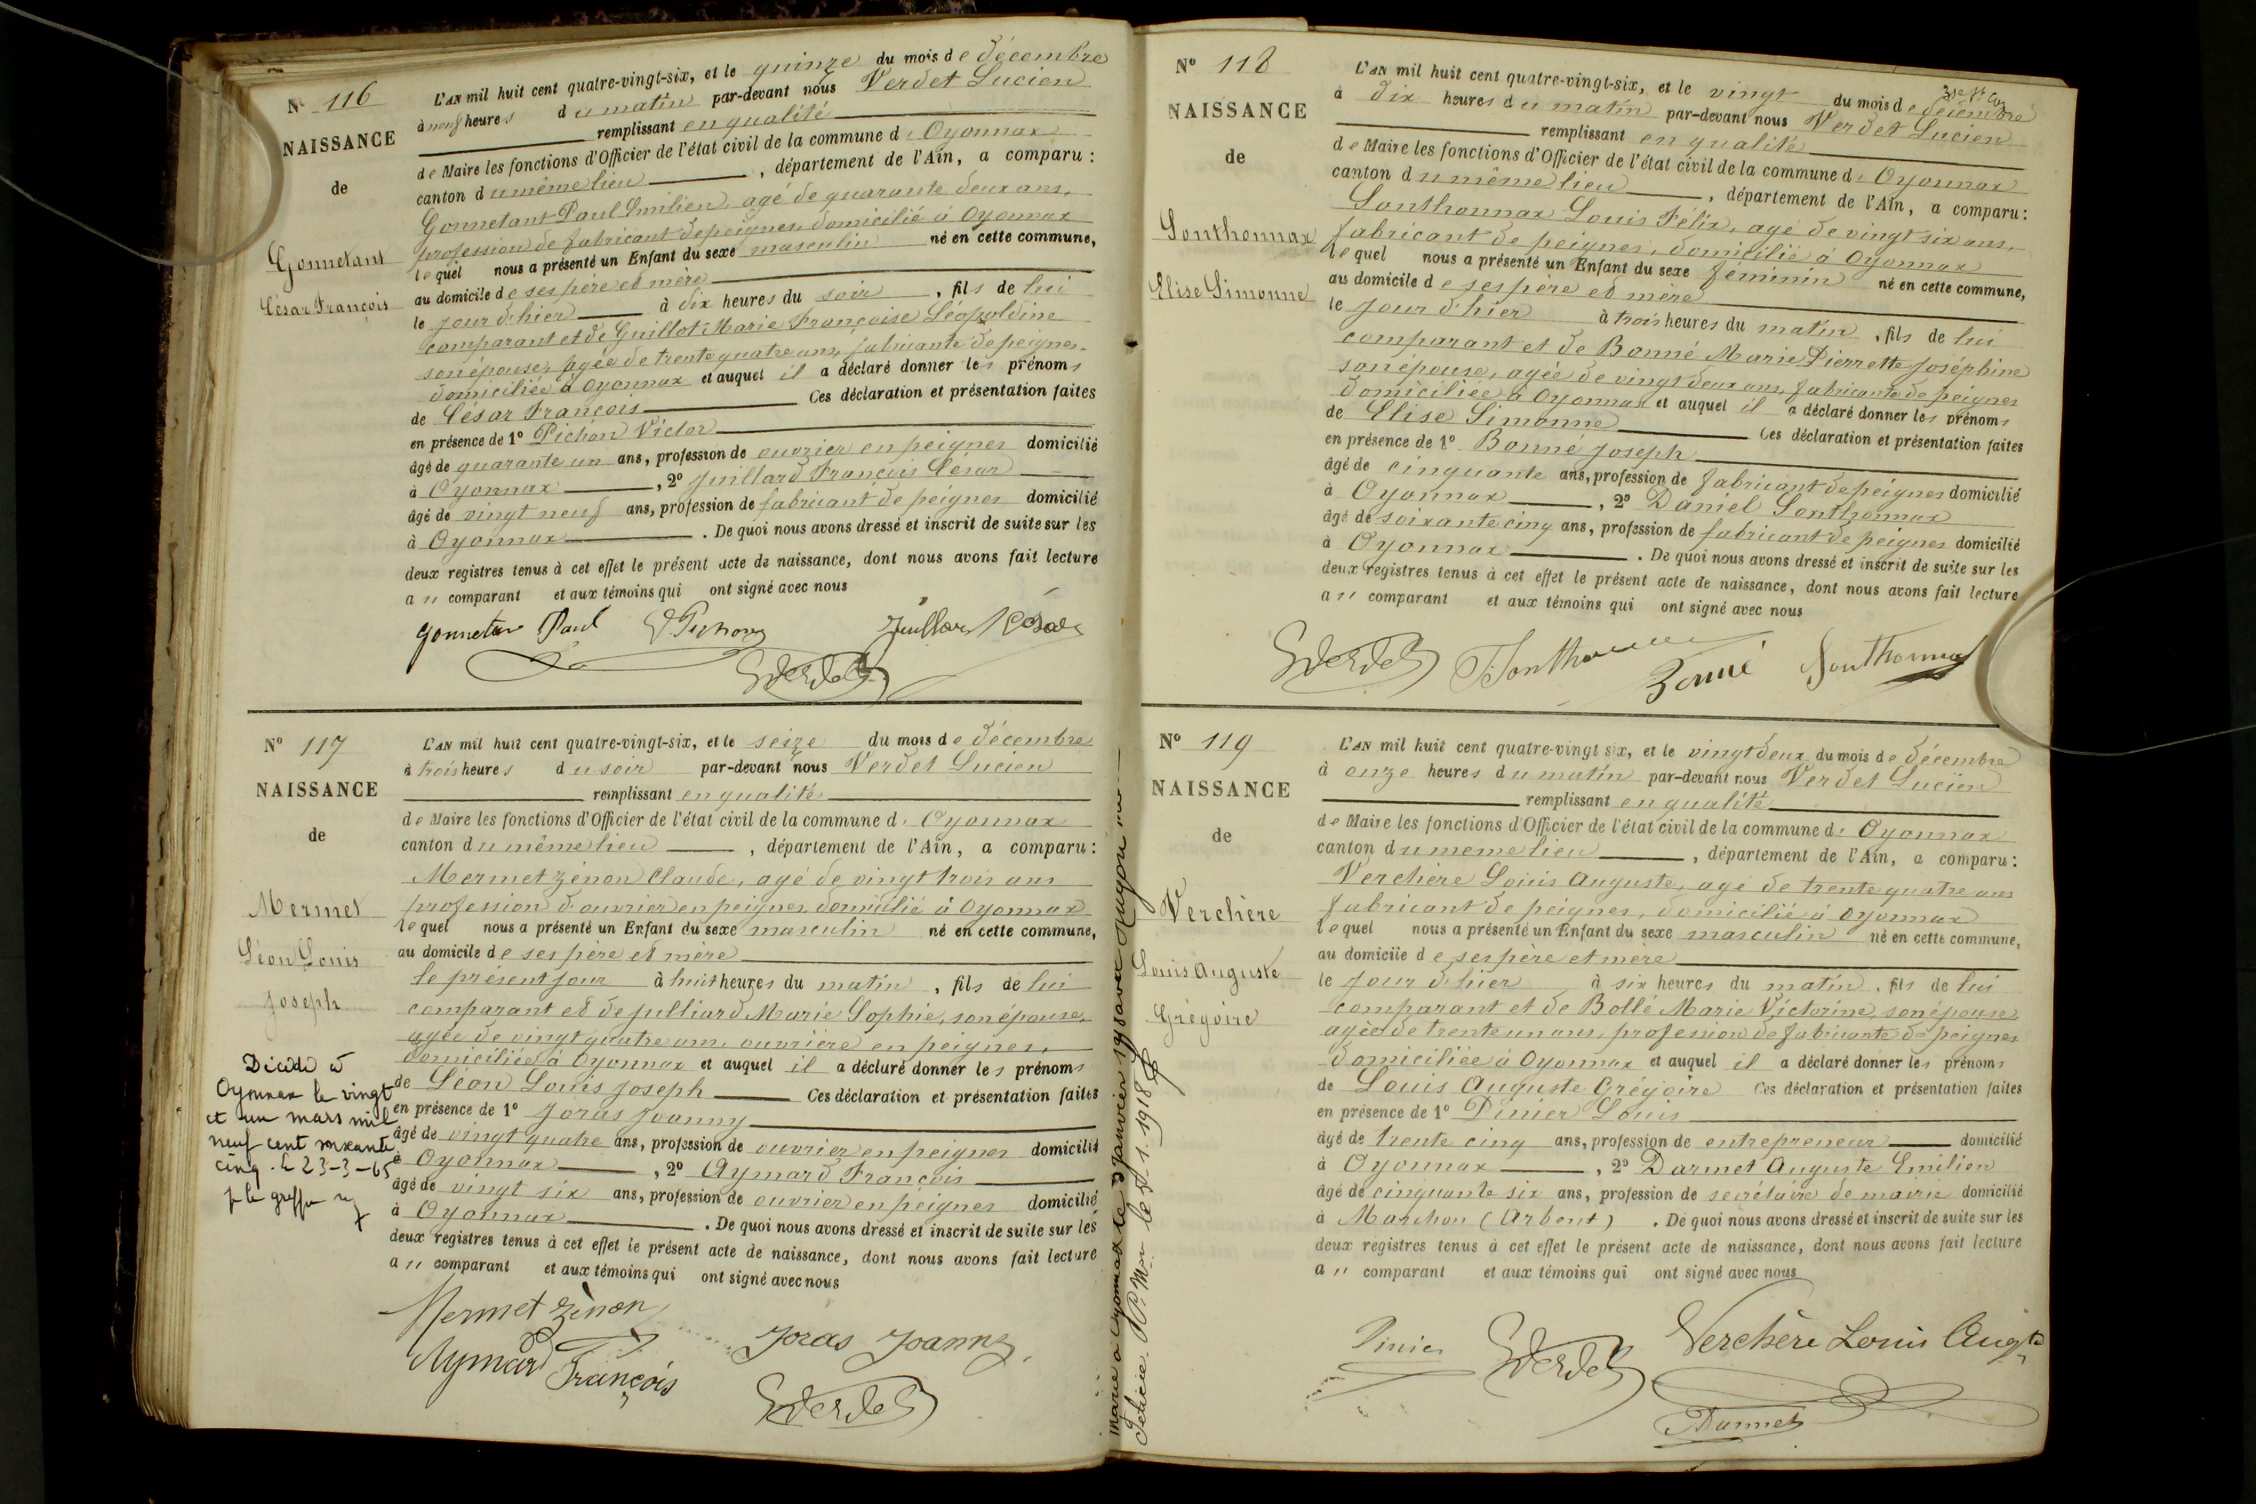 N° 116
NAISSANCE
de
Gonnetant
César François
L'AN mil huit cent quatre-vingt-six, et le quinze du mois de décembre
à neuf heures du matin par-devant nous Verdet Lucien
remplissant en qualité
de Maire les fonctions d'Officier de l'état civil de la commune d' Oyonnax
canton du même lieu, département de l'Ain, a comparu:
Gonnetant Paul Emilien, agé de quarante deux ans,
profession de fabricant de peignes, domicilié à Oyonnax
lequel nous a présenté un Enfant du sexe masculin né en cette commune,
au domicile de ses père et mère
le jour d'hier à dix heures du soir, fils de lui
comparant et de Guillot Marie Françoise Léopoldine
son épouse, agée de trente quatre ans, fabricante de peignes
domiciliée à Oyonnax et auquel il a déclaré donner les prénoms
de César François Ces déclaration et présentation faites
en présence de 1° Pichon Victor
âgé de quarante un ans, profession de ouvrier en peignes domicilié
à Oyonnax, 2° Juillard François César
âgé de vingt neuf ans, profession de fabricant de peignes domicilié
à Oyonnax. De quoi nous avons dressé et inscrit de suite sur les
deux registres tenus à cet effet le présent acte de naissance, dont nous avons fait lecture
au comparant et aux témoins qui ont signé avec nous
Gonnetan Paul V. Pichon Juillard César
Verdet
N° 117
NAISSANCE
de
Mermet
Léon Louis
Joseph
Décédé à
Oyonnax le vingt
et un mars mil
neuf cent soixante
cinq. L 23-3-65
p le greffier
L'AN mil huit cent quatre-vingt-six, et le seize du mois de décembre
à trois heures du soir par-devant nous Verdet Lucien
remplissant en qualité
de Maire les fonctions d'Officier de l'état civil de la commune d' Oyonnax
canton du même lieu, département de l'Ain, a comparu:
Mermet Zénon Claude, agé de vingt trois ans
profession d'ouvrier en peignes, domicilié à Oyonnax
lequel nous a présenté un Enfant du sexe masculin né en cette commune,
au domicile de ses père et mère
le présent jour à huit heures du matin, fils de lui
comparant et de Julliard Marie Sophie, son épouse,
agée de vingt quatre ans, ouvrière en peignes,
domiciliée à Oyonnax et auquel il a déclaré donner les prénoms
de Léon Louis Joseph Ces déclaration et présentation faites
en présence de 1° Joras Joanny
âgé de vingt quatre ans, profession de ouvrier en peignes domicilié
à Oyonnax, 2° Aymard François
âgé de vingt six ans, profession de ouvrier en peignes domicilié
à Oyonnax. De quoi nous avons dressé et inscrit de suite sur les
deux registres tenus à cet effet le présent acte de naissance, dont nous avons fait lecture
au comparant et aux témoins qui ont signé avec nous
Mermet Zénon
Joras Joanny
Aymard François
Verdet
N° 118
NAISSANCE
de
Sonthonnax
Elise Simonne
L'AN mil huit cent quatre-vingt-six, et le vingt du mois de décembre
à dix heures du matin par-devant nous Verdet Lucien
remplissant en qualité
de Maire les fonctions d'Officier de l'état civil de la commune d' Oyonnax
canton du même lieu, département de l'Ain, a comparu:
Sonthonnax Louis Félix, agé de vingt six ans,
fabricant de peignes, domicilié à Oyonnax
lequel nous a présenté un Enfant du sexe féminin né en cette commune,
au domicile de ses père et mère
le jour d'hier à trois heures du matin, fils de lui
comparant et de Bonné Marie Pierrette Joséphine
son épouse, agée de vingt deux ans, fabricante de peignes
domiciliée à Oyonnax et auquel il a déclaré donner les prénoms
de Elise Simonne Ces déclaration et présentation faites
en présence de 1° Bonné Joseph
âgé de cinquante ans, profession de fabricant de peignes domicilié
à Oyonnax, 2° Daniel Sonthonnax
âgé de soixante cinq ans, profession de fabricant de peignes domicilié
à Oyonnax. De quoi nous avons dressé et inscrit de suite sur les
deux registres tenus à cet effet le présent acte de naissance, dont nous avons fait lecture
au comparant et aux témoins qui ont signé avec nous
Verdet Sonthonnax Bonné Sonthonnax
N° 119
NAISSANCE
de
Verchère
Louis Auguste
Grégoire
Marié à Oyonnax le
Janvier
avec
Félicie. le 1.1918
L'AN mil huit cent quatre-vingt six, et le vingt deux du mois de décembre
à onze heures du matin par-devant nous Verdet Lucien
remplissant en qualité
de Maire les fonctions d'Officier de l'état civil de la commune d' Oyonnax
canton du meme lieu, département de l'Ain, a comparu:
Verchère Louis Auguste, agé de trente quatre ans
fabricant de peignes, domicilié à Oyonnax
lequel nous a présenté un Enfant du sexe masculin né en cette commune,
au domicile de ses père et mère
le jour d'hier à six heures du matin, fils de lui
comparant et de Bollé Marie Victorine, son épouse
agée de trente un ans, profession de fabricante de peignes
domiciliée à Oyonnax et auquel il a déclaré donner les prénoms
de Louis Auguste Grégoire Ces déclaration et présentation faites
en présence de 1° Pinier Louis
âgé de trente cinq ans, profession de entrepreneur domicilié
à Oyonnax, 2° Darmet Auguste Emilien
âgé de cinquante six ans, profession de secrétaire de mairie domicilié
à Marchon (Arbent). De quoi nous avons dressé et inscrit de suite sur les
deux registres tenus à cet effet le présent acte de naissance, dont nous avons fait lecture
au comparant et aux témoins qui ont signé avec nous
Pinier Verdet Verchère Louis Augte
Darmet